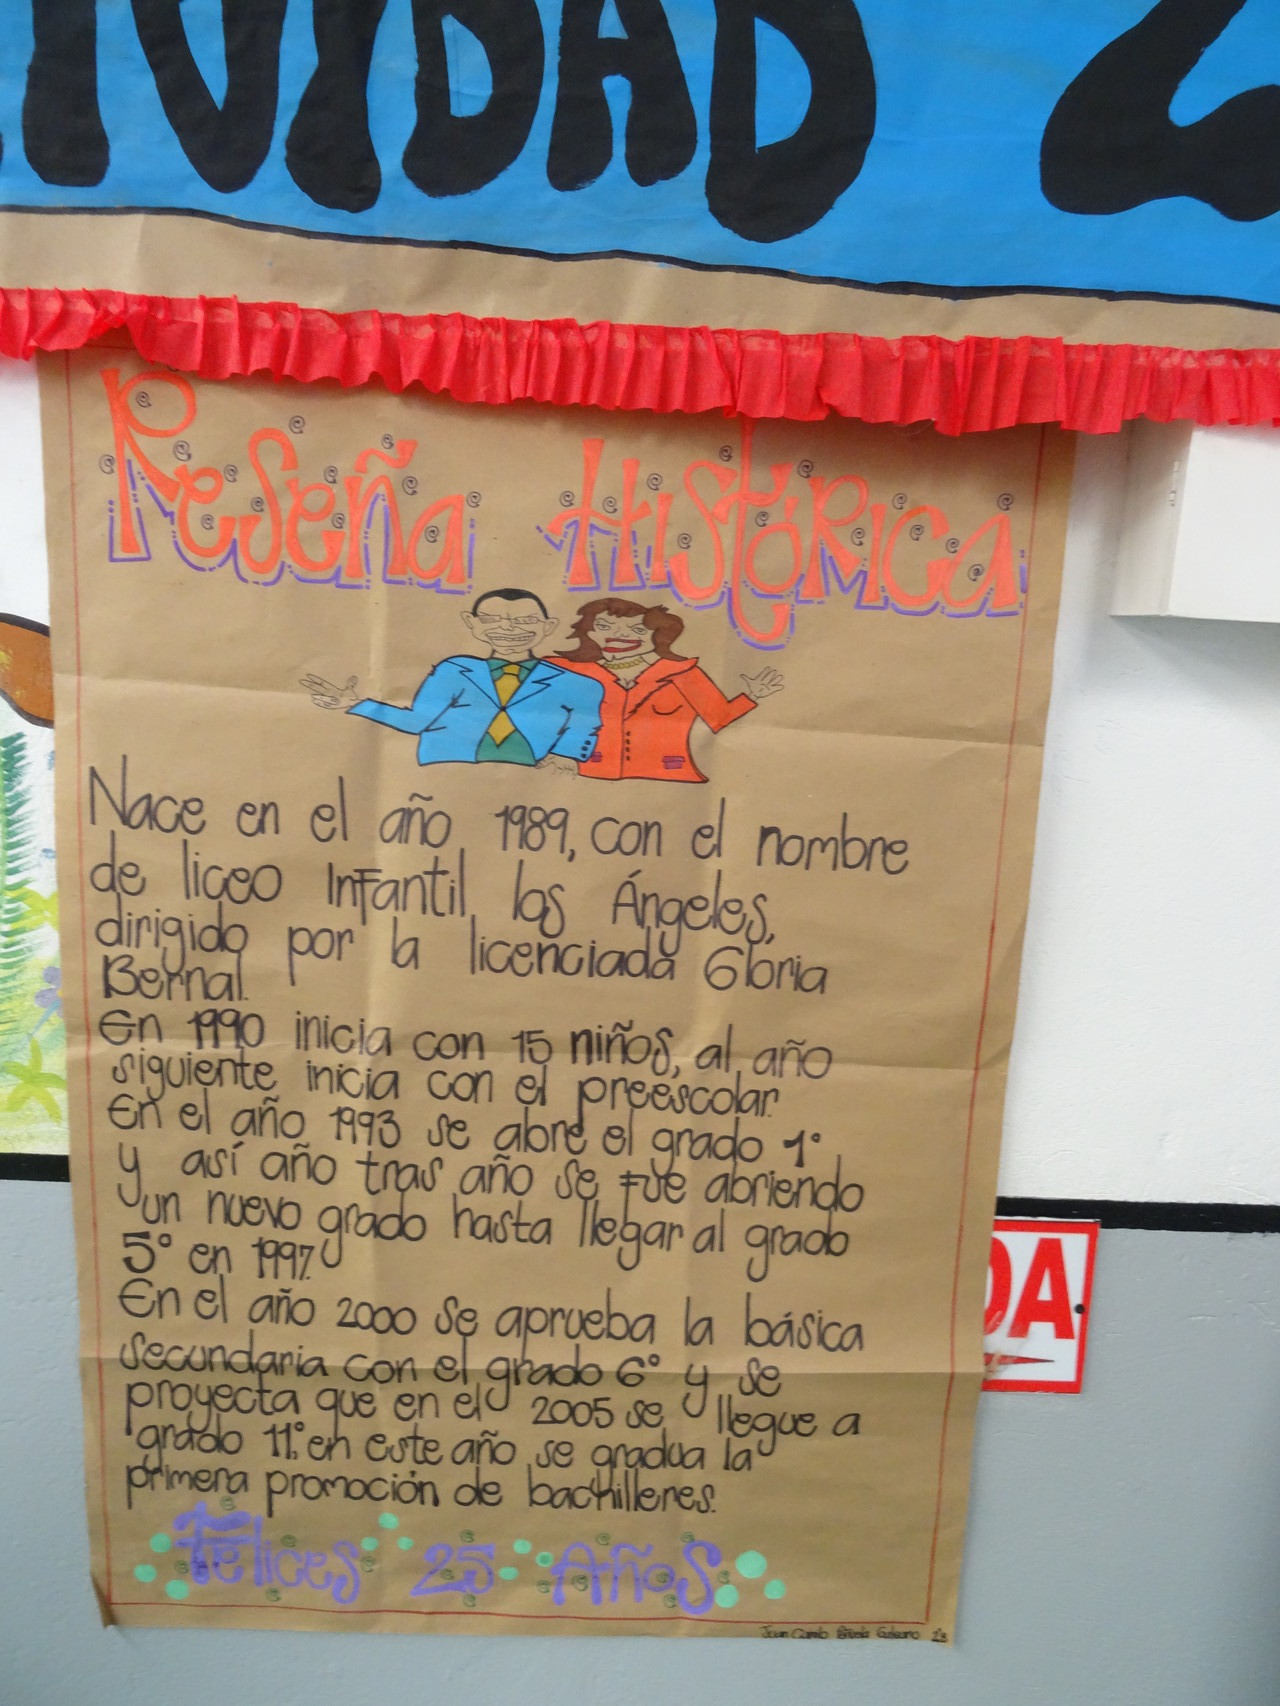 IVIDAD 2
Reseña Histórica
Nace en el año 1989, con el nombre
de liceo Infantil los Ángeles,
dirigido por la licenciada Gloria
Bernal.
En 1990 inicia con 15 niños, al año
siguiente inicia con el preescolar.
En el año 1993 se abre el grado 1°
y así año tras año se fue abriendo
un nuevo grado hasta llegar al grado
5° en 1997.
En el año 2000 se aprueba la básica
secundaria con el grado 6° y se
proyecta que en el 2005 se llegue a
grado 11° en este año se gradua la
primera promoción de bachilleres.
Felices 25 Años
Juan Camilo
DA